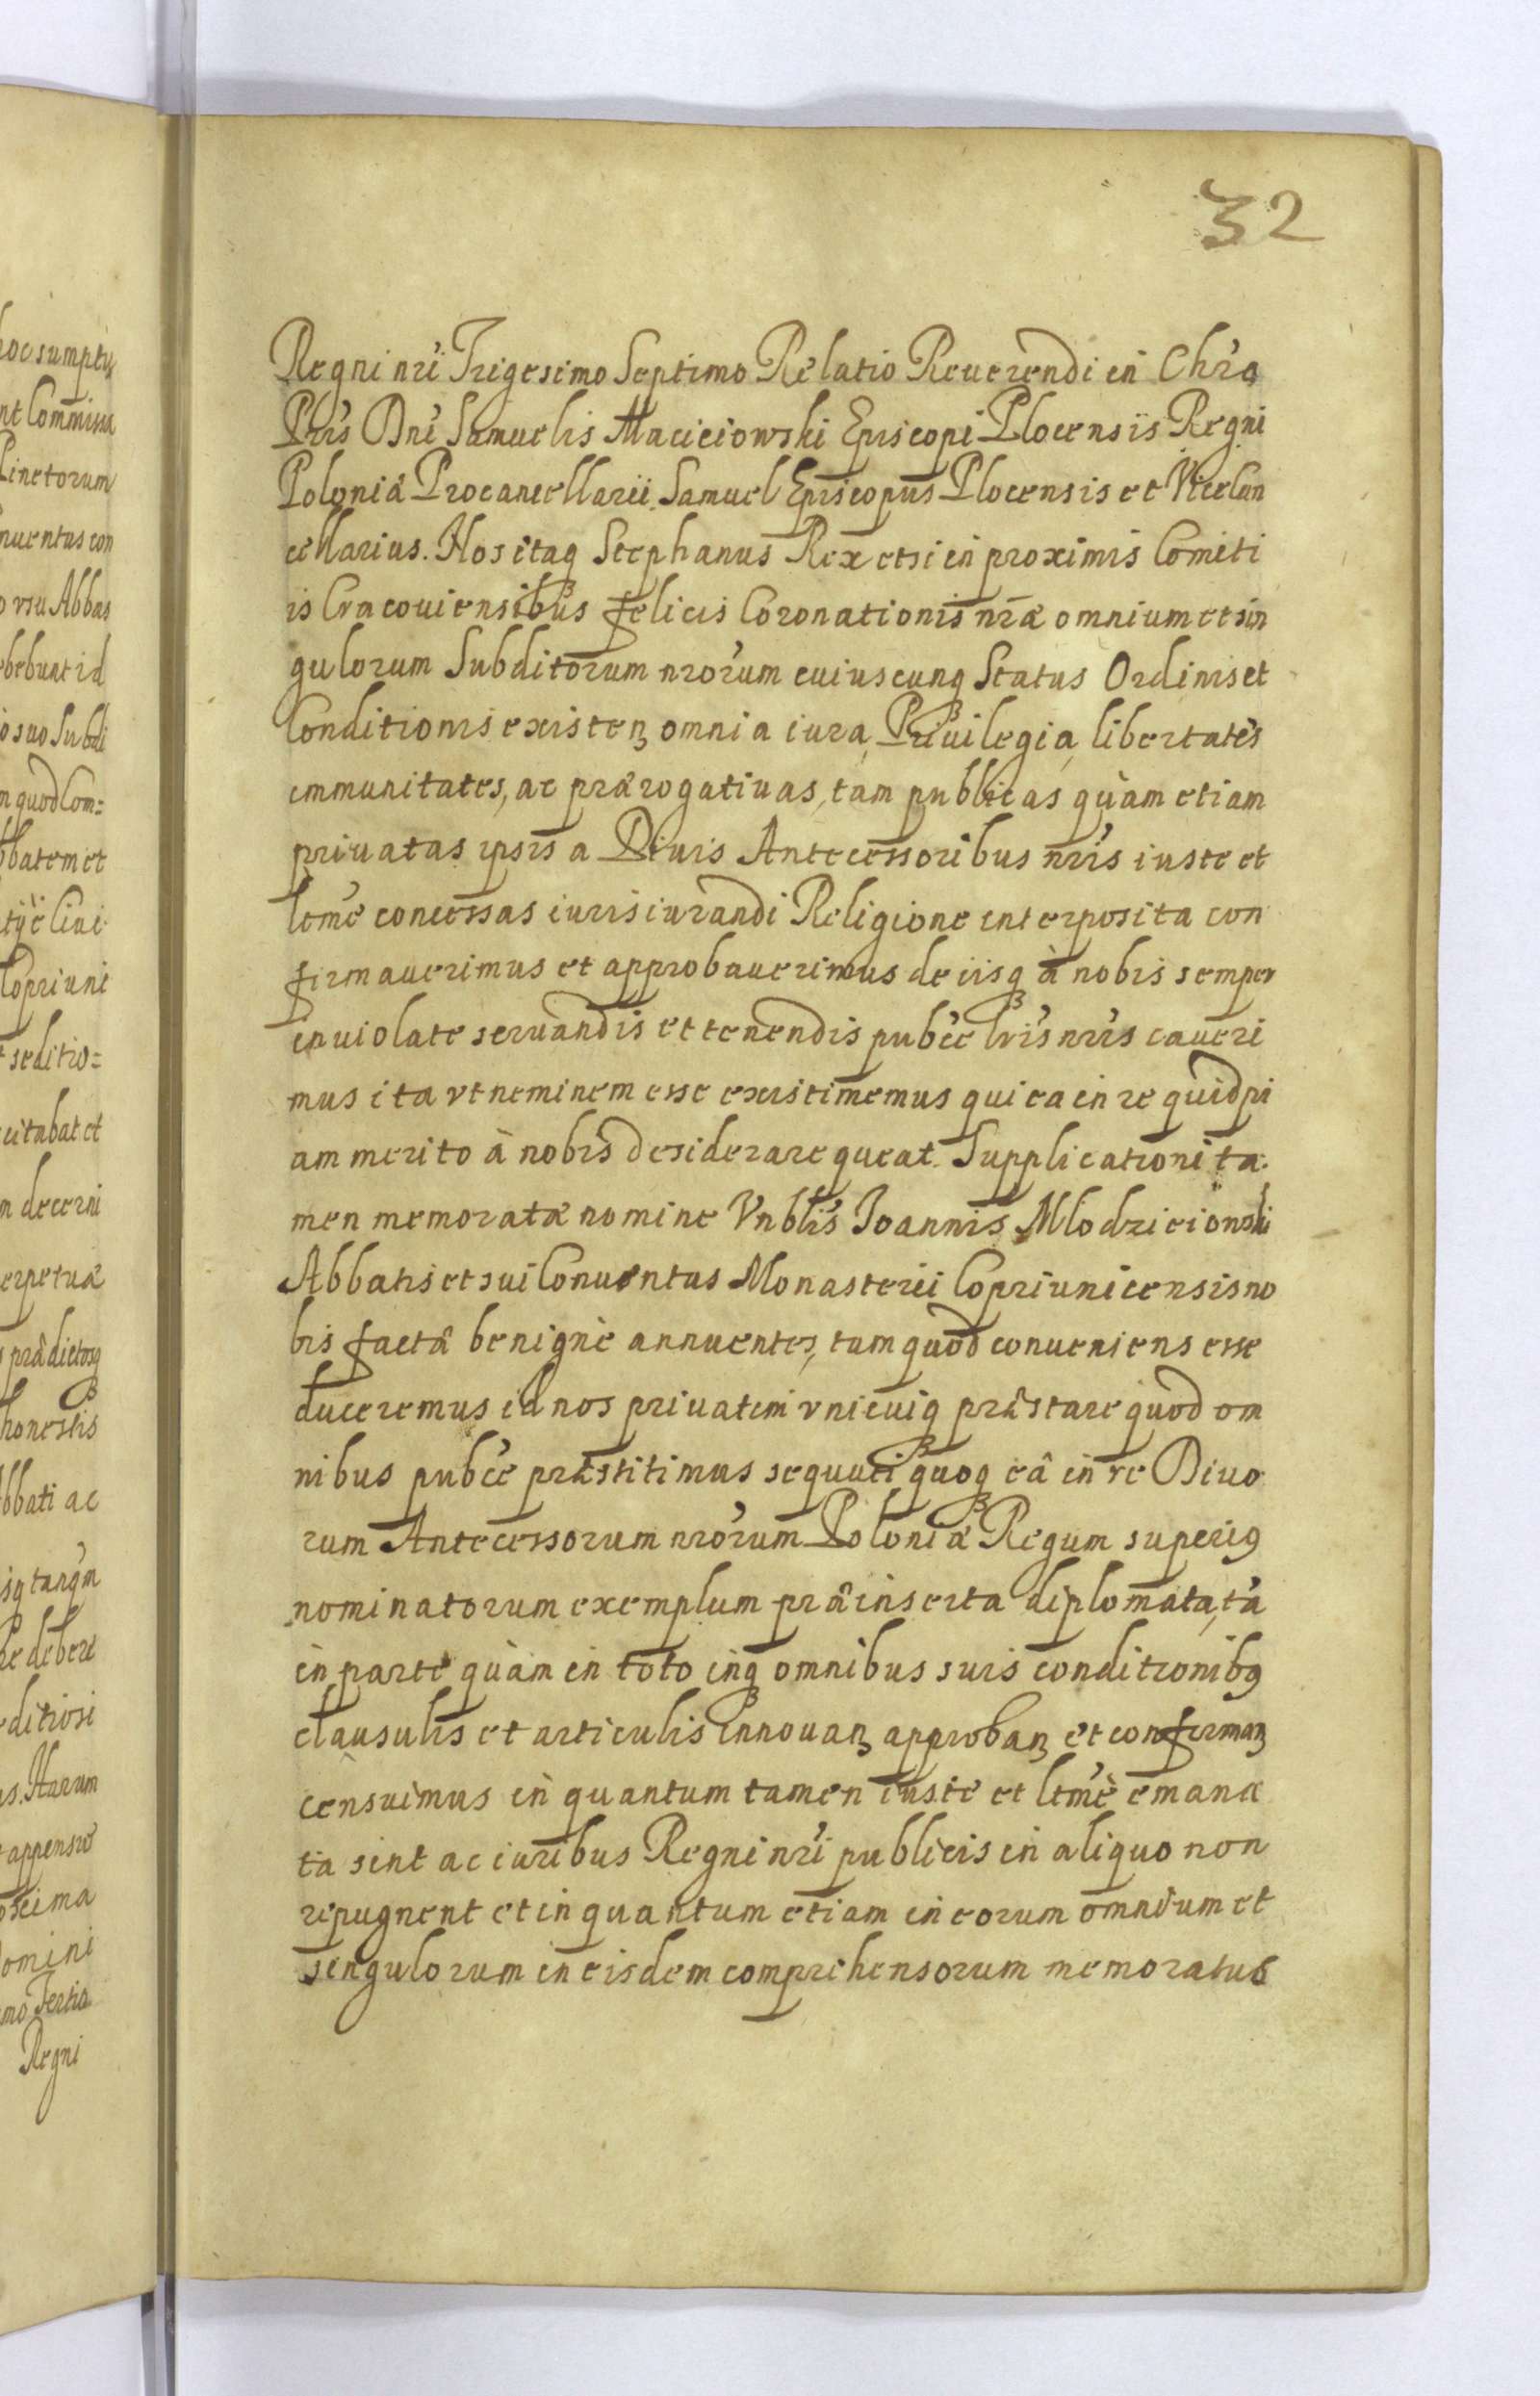 32
Regni nri Trigesimo Septimo Relatio Reuerendi in Chro
Pris Dni Samuelis Macieiowski Episcopi Plocensis Regni
Poloniæ Procancellarii. Samuel Episcopus Plocensis et Vicecan
cellarius. Nos itaq Stephanus Rex etsi in proximis Comiti
is Cracouiensibus felicis Coronationis nræ omnium et sin
gulorum Subditorum nrorum cuiuscunq Status Ordinis et
Conditionis existenꝫ omnia iura, Priuilegia, libertates
immunitates, ac prærogatiuas, tam publicas quàm etiam
priuatas ipsis a Diuis Antecessoribus nris iuste et
ltme concessas iurisiurandi Religione interposita con
firmauerimus et approbauerimus de iisq à nobis semper
inuiolate seruandis et tenendis publce lris nris caueri
mus ita vt neminem esse existimemus qui ea in re quidpi
am merito à nobis desiderare queat. Supplicationi ta
men memoratæ nomine Vnblis Joannis Mlodzieionski
Abbatis et sui Conuentus Monasterii Copriunicensis no
bis factâ benignè annuentes, tum quod conueniens esse
duceremus id nos priuatim vnicuiq præstare quod om
nibus publce præstitimus sequuti quoq eâ in re Diuo
rum Antecessorum nrorum Poloniæ Regum superiꝰ
nominatorum exemplum præinserta diplomata, tà
in parte quàm in toto inq omnibus suis conditionibꝰ
clausulis et articulis innouanꝫ approbanꝫ et confirmanꝫ
censuimus in quantum tamen iuste et ltmè emana
ta sint ac iuribus Regni nri publicis in aliquo non
repugnent et in quantum etiam in eorum omnium et
singulorum in eisdem comprehensorum memoratus
oc sumptu
nt Commissa
Pinctorum
nuentus con
o vsu Abbas
bebunt id
o suo Subdi
quod Com=
bbatem et
Copriuni
t seditio=
citabat et
decerni
erpetuæ
prædictosq
honestis
bbati ac
isq tanqm
debere
editiosi
s. Harum
appensum
omini
mo Tertio
Regni